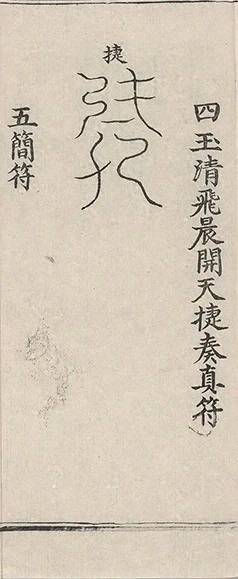 四玉清飛晨開天捷奏真符
捷
五簡符